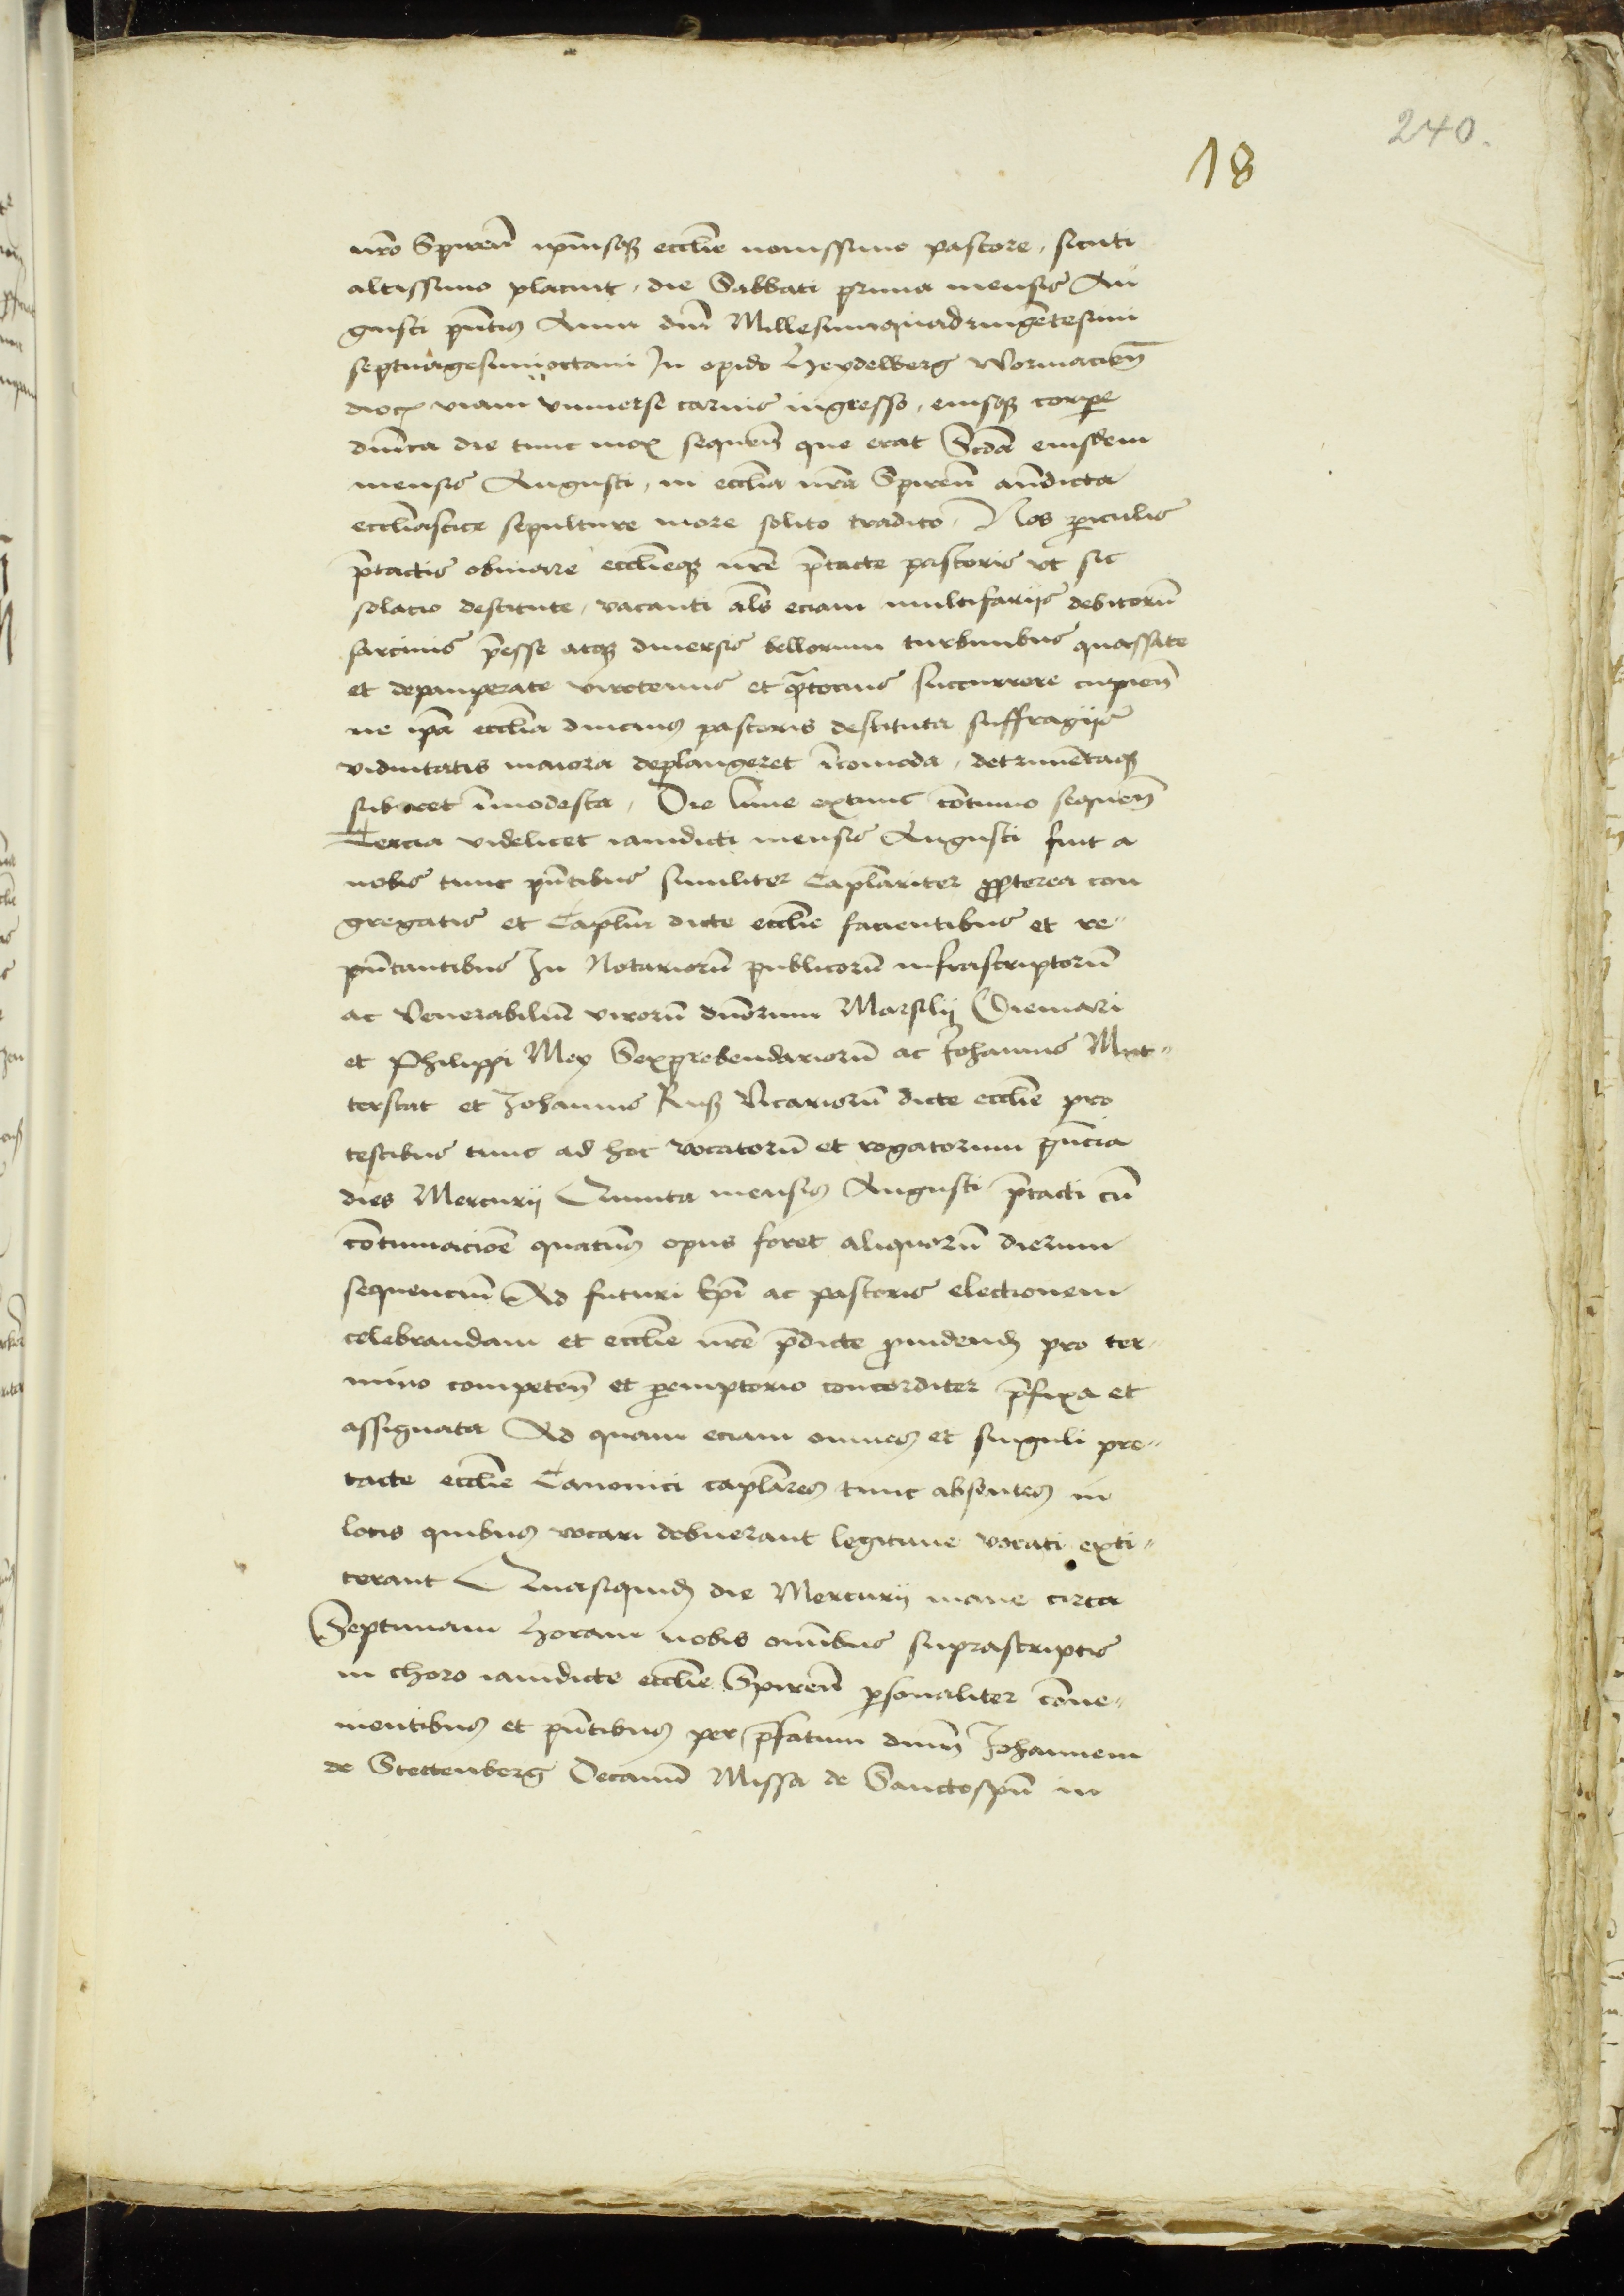 240.
18
nro Spiren̄ ip̄iusqꝫ eccłie nouissimo pastore, sicuti
altissimo placuit, die Sabbati prima mensis Au
gusti pn̄tis Anni dn̄i Millesimiquadringētesimi
septuagesimioctaui In opido Heydelberg Wormacien̄
dioc̄ viam vniuerse carnis ingresso, eiusqꝫ corpe
dn̄ica die tunc mox sequen̄ que erat Scd̄a eiusdem
mensis Augusti, in eccłia nr̄a Spiren̄ an̄dicta
eccłiastice sepulture more solito tradito, Nos ꝑiculis
p̄tactis obuiare eccłieqꝫ nr̄e p̄tacte pastoris vt sic
solacio destitute, vacanti al̄s eciam multifarijs debitorū
sarcinis p̄esse atqꝫ diuersis bellorum turbinibus quassate
et depauperate virotenus et q̄tocius succurrere cupien̄
ne ip̄a eccłia diucius pastoris destituta suffragijs
viduitatis maiora deplangeret īcomoda, detrimētaqꝫ
subiret īmodesta, Die lune extunc cōtinuo sequen̄
Tercia videlicet iamdicti mensis Augusti fuit a
nobis tunc pn̄tibus similiter Capłariter ꝓpterea con
gregatis et Capłm dicte eccłie facientibus et re-
pn̄tantibus In Notariorū publicorū infrascriptorū
ac Venerabiliū virorū dn̄orum Marsilij Diemari
et Philippi Mey Sexprebendariorū ac Johannis Mut-
terstat et Johannis Ruß Vicariorū dicte eccłie pro
testibus tunc ad hoc vocatorū et rogatorum pn̄cia
dies Mercurij Quinta mensis Augusti p̄tacti cū
cōtinuacioē quatin̄s opus foret aliquorū dierum
sequenciū Ad futuri Ep̄i ac pastoris electionem
celebrandam et eccłie nr̄e p̄dicte ꝓuidend̄ pro ter-
mino competen̄ et ꝑemptorio concorditer p̄fixa et
assignata Ad quam eciam omnes et singuli pre-
tacte eccłie Canonici capłares tunc absentes in
locis quibus vocari debuerant legitime vocati exti-
terant Quasiquid̄ die Mercurij mane circa
Septimam Horam nobis om̄ibus suprascriptis
in choro iamdicte eccłie Spiren̄ ꝑsonaliter cōue-
nientibus et pn̄tibus per p̄fatum dn̄m Johannem
de Stettenberg Decanū Missa de Sanctospū in